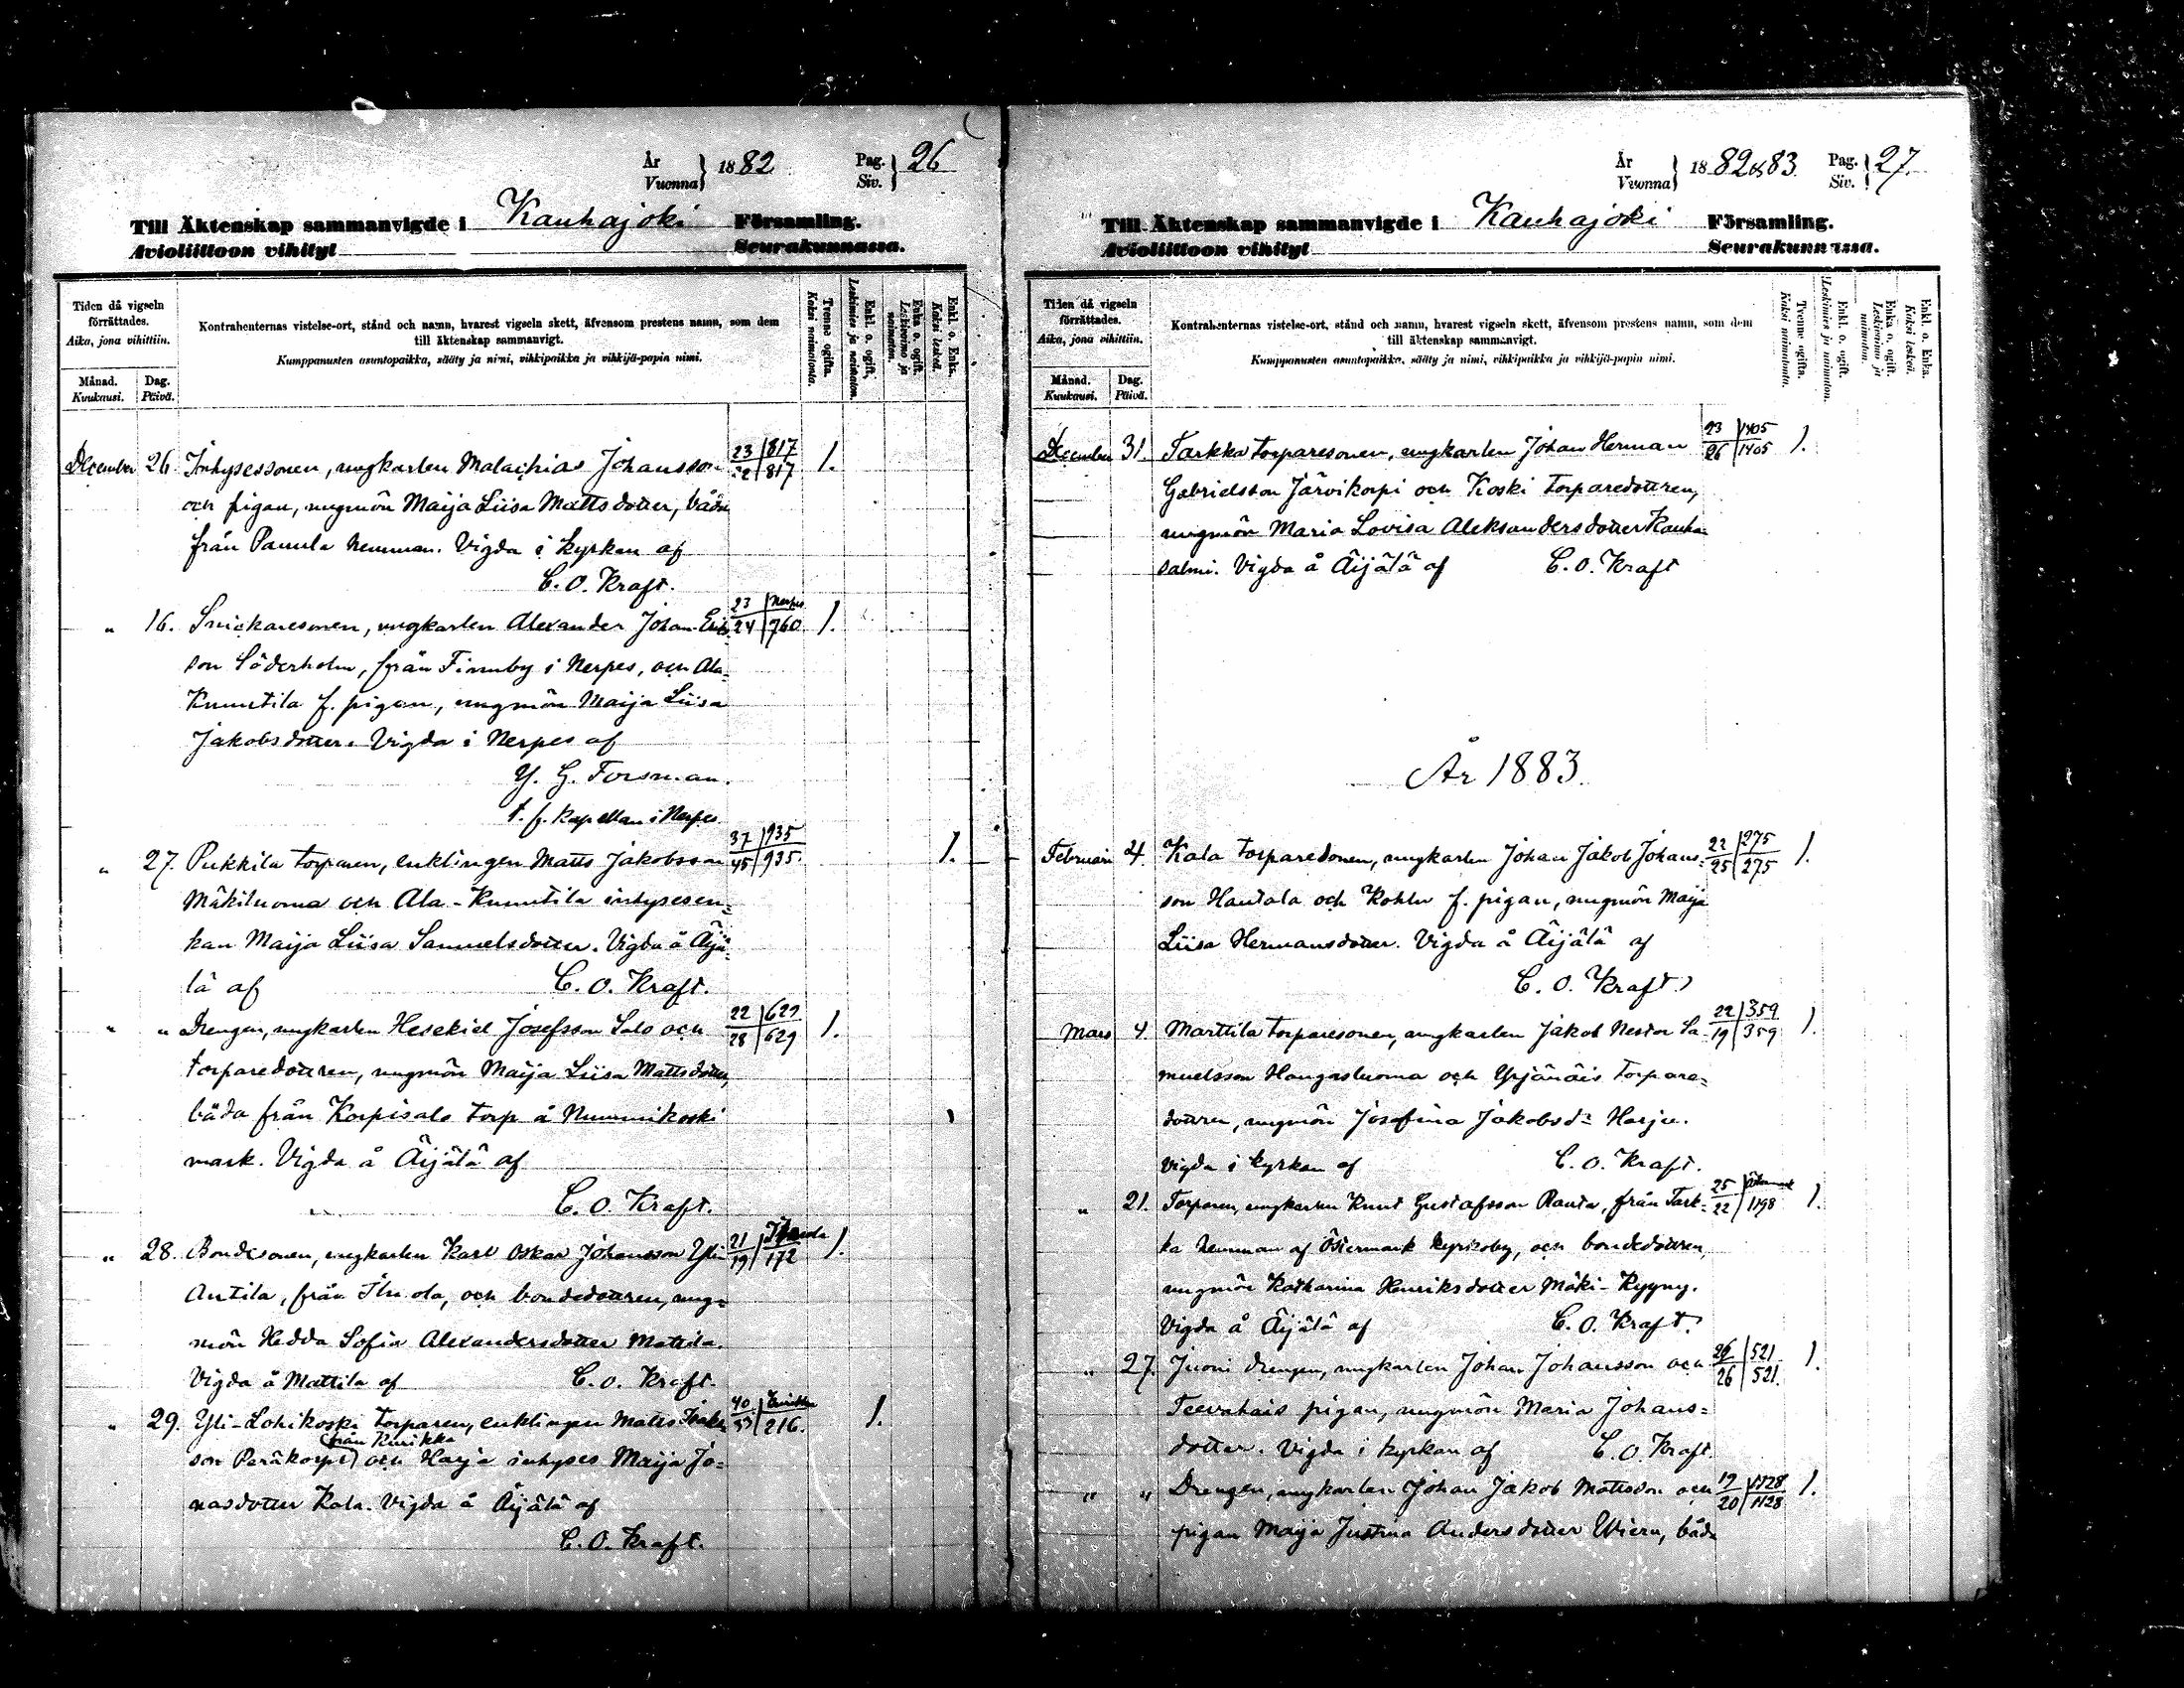 År
Vuonna } 1882
Pag.
Siv. } 26
Till Äktenskap sammanvigde i Kauhajoki Församling.
Avioliittoon vihityt Seurakunnassa.
Tiden då vigseln förrättades.
Aika, jona vihittiin.
Månad.
Kuukausi.
Dag.
Päivä.
Kontrahenternas vistelse-ort, stånd och namn, hvarest vigseln skett, äfvensom prestens namn, som dem
till äktenskap sammanvigt.
Kumppanusten asuntopaikka, sääty ja nimi, vihkipaikka ja vihkijä-papin nimi.
Tvenne ogifta.
Kaksi naimatonta.
Enkl. o. ogift.
Leskimies ja naimaton.
Enka o. ogift.
Leskivaimo ja naimaton.
Enkl. o. Enka.
Kaksi leskeä.
December 26. Inhysessonen, ungkarlen Malachias Johansson 23/22 817/817 1.
och pigan, ungmön Maija Liisa Mattsdotter, båda
från Panula hemman. Vigda i kyrkan af
C. O. Kraft.
" 16. Snickaresonen, ungkarlen Alexander Johan Eriks- 23/24 Nerpes/760 1.
son Söderholm, från Finnby i Nerpes, och Ala-
Knuutila f. pigan, ungmön Maija Liisa
Jakobsdotter. Vigda i Nerpes af
Y. G. Forsman.
t. f. kapellan i Nerpes
" 27. Pukkila torparen, enklingen Matts Jakobsson 37/45 935/935. 1.
Mäkiluoma och Ala-Knuutila inhysesen-
kan Maija Liisa Samuelsdotter. Vigda å Äijä-
lä af C. O. Kraft.
" " Drengen, ungkarlen Hesekiel Josefsson Salo och 22/28 629/629 1.
torparedottren, ungmön Maija Liisa Mattsdotter,
båda från Korpisalo torp å Nummikoski
mark. Vigda å Äijälä af
C. O. Kraft.
" 28. Bondesonen, ungkarlen Karl Oskar Johansson Yli 21/19 172 1.
Antila, från och bondedottren, ung-
mön Hedda Sofia Alexandersdotter Mattila.
Vigda å Mattila af C. O. Kraft.
" 29. Yli-Lohikoski torparen, enklingen Matts Isaks- 40/53 Kurikka/216. 1.
från Kurikka
son Peräkorpi och Harja inhyses Maija Jo-
nasdotter Kala. Vigda å Äijälä af
C. O. Kraft.
År
Vuonna } 1882 & 83
Pag.
Siv. } 27.
Till Äktenskap sammanvigde i Kauhajoki Församling.
Avioliittoon vihityt Seurakunnassa.
Tiden då vigseln förrättades.
Aika, jona vihittiin.
Månad.
Kuukausi.
Dag.
Päivä.
Kontrahenternas vistelse-ort, stånd och namn, hvarest vigseln skett, äfvensom prestens namn, som dem
till äktenskap sammanvigt.
Kumppanusten asuntopaikka, sääty ja nimi, vihkipaikka ja vihkijä-papin nimi.
Tvenne ogifta.
Kaksi naimatonta.
Enkl. o. ogift.
Leskimies ja naimaton.
Enka o. ogift.
Leskivaimo ja naimaton.
Enkl. o. Enka.
Kaksi leskeä.
December 31. Tarkka torparesonen, ungkarlen Johan Herman 23/26 1405/1405 1.
Gabrielsson Järvikorpi och Koski torparedottren,
ungmön Maria Lovisa Aleksandersdotter Kauha-
salmi. Vigda å Äijälä af C. O. Kraft
År 1883.
Februari 4. Kala torparesonen, ungkarlen Johan Jakob Johans- 22/25 275/275 1.
son Hautala och f. pigan, ungmön Maija
Liisa Hermansdotter. Vigda å Äijälä af
C. O. Kraft.
Mars 4. Marttila torparesonen, ungkarlen Jakob Nestor Sa- 22/19 359/359 1.
muelsson Hangasluoma och torpare-
dottren, ungmön Josefina Jakobsd:r Harju.
Vigda i kyrkan af C. O. Kraft.
" 21. Torparen, ungkarlen Knut Gustafsson Rauta, från Tark- 25/22 Östermark/1198 1.
ka hemman af Östermark kyrkoby, och bondedottren,
ungmön Katharina Henriksdotter Mäki-Kyyny.
Vigda å Äijälä af C. O. Kraft.
" 27. Juoni drengen, ungkarlen Johan Johansson och 26/26 521/521. 1.
Teevahais pigan, ungmön Maria Johans-
dotter. Vigda i kyrkan af C. O. Kraft.
" " Drengen, ungkarlen Johan Jakob Mattsson och 19/20 1128/1128 1.
pigan Maija Justina Andersdotter båda